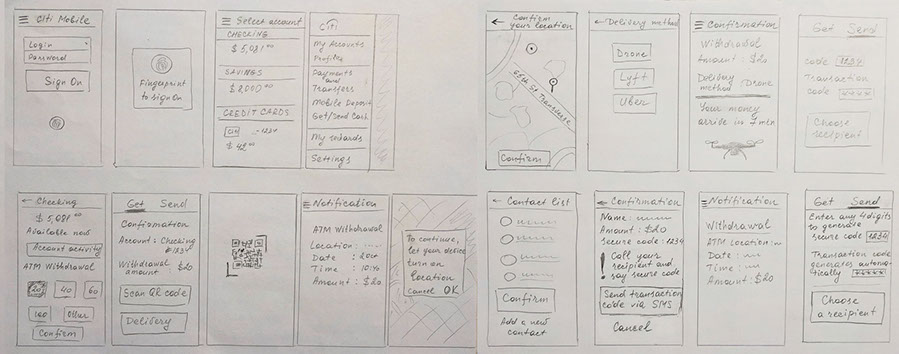 Citi Mobile
Login
Password
Sign On
Fingerprint
to sign on
Select account
CHECKING
$ 5,081 00
SAVINGS
$ 2000 00
CREDIT CARDS
citi - 1234
$ 42 00
Citi
My Accounts
Profile
Payments
and
Transfers
Mobile Deposit
Get/Send Cash
My rewards
Settings
Confirm
your location
65th St Transverse
Confirm
Delivery method
Drone
Lyft
Uber
Confirmation
Withdrawal
Amount: $20
Delivery
method Drone
Your money
arrive in 7 min
Get Send
code 1234
Transaction
code ****
Choose
recipient
Checking
$ 5,081 00
Available now
Account activity
ATM Withdrawal
20 40 60
100 Other
Confirm
Get Send
Confirmation
Account: Checking
Withdrawal
amount: $20
Scan QR code
Delivery
Notification
ATM Withdrawal
Location:
Date:
Time:
Amount: $20
To continue,
let your device
turn on
location
Cancel OK
Contact list
Confirm
Add a new
contact
Confirmation
Name:
Amount: $20
secure code: 1234
! Call your
recipient and
say secure code
Send transaction
code via SMS
Cancel
Notification
Withdrawal
ATM Location:
Date:
Time:
Amount: $20
Get Send
Enter any 4 digits
to generate
secure code 1234
Transaction code
generates automa-
tically *****
Choose
a recipient